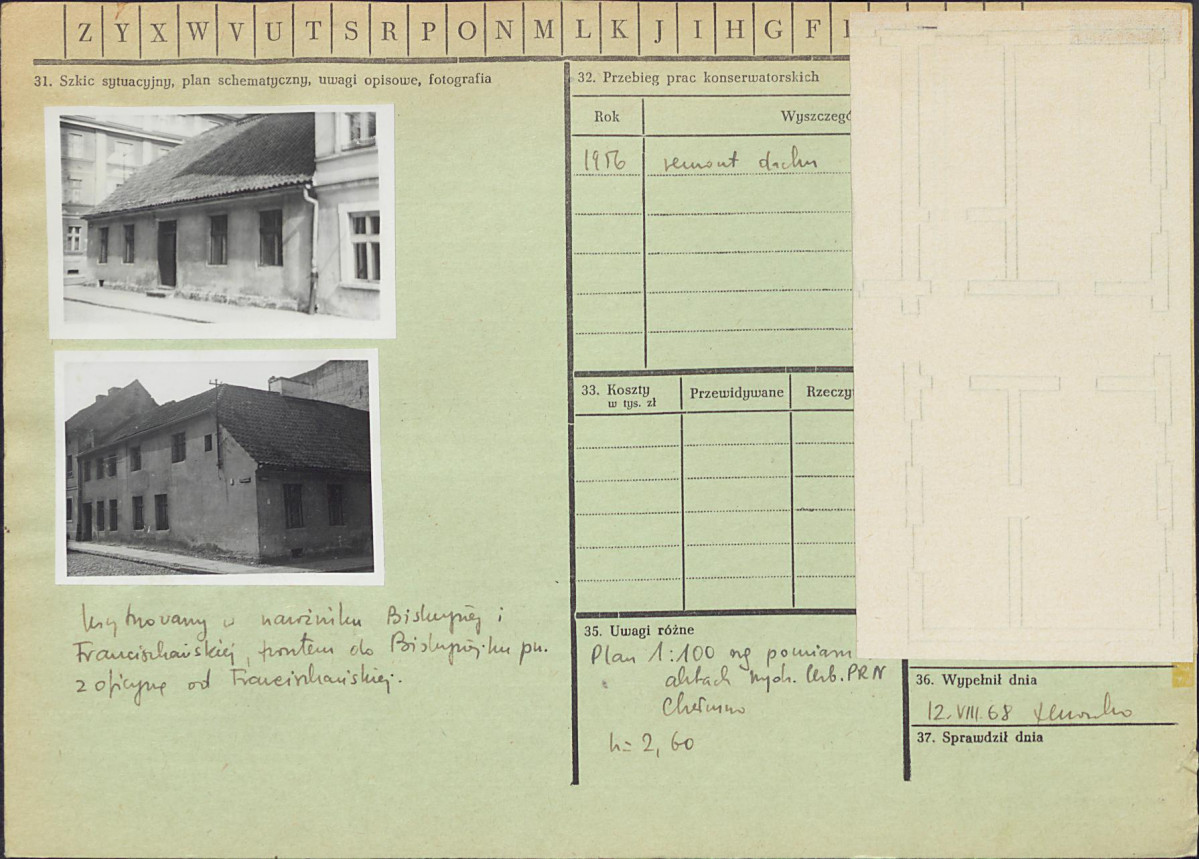 Z Y X W V U T S R P O N M L K J I H G F
31. Szkic sytuacyjny, plan schematyczny, uwagi opisowe, fotografia
32. Przebieg prac konserwatorskich
Rok
Wyszczegó
1956 remont dachu
33. Koszty w tys. zł
Przewidywane
Rzeczy
Usytuowany w narożniku Biskupiej i
Franciszkańskiej, frontem do Biskupiej-ku pn.
z oficyną od Franciszkańskiej.
35. Uwagi różne
Plan 1:100 wg pomiaru
aktach Wydz. Urb. PRN
Chełmno
h= 2,60
36. Wypełnił dnia
12.VIII.68
37. Sprawdził dnia